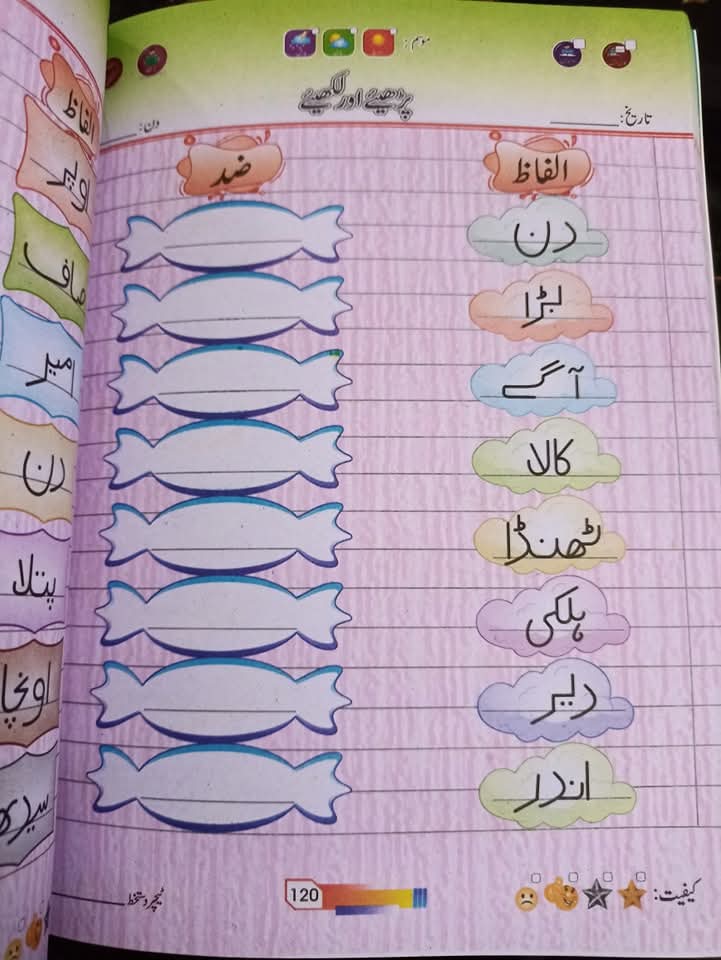 موسم:
پڑھیے اور لکھیے
تاریخ:
دن:
الفاظ
ضد
دن
بڑا
آگے
کالا
ٹھنڈا
ہلکی
دلیر
اندر
کیفیت:
120
ٹیچر دستخط
الفاظ
اوپر
صاف
امیر
دن
پتلا
اونچا